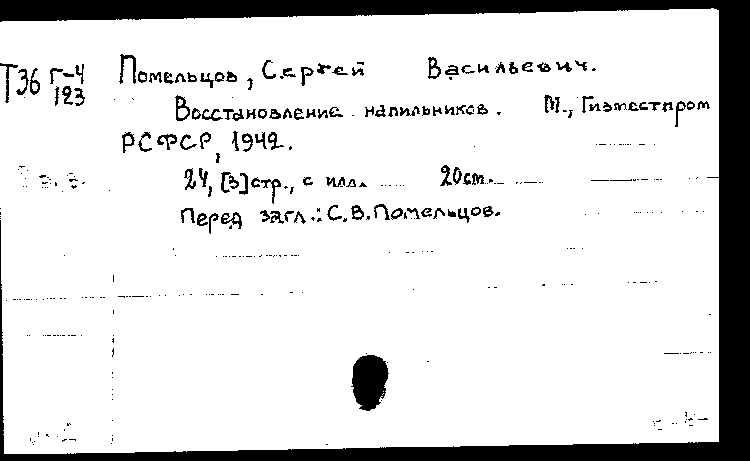 Т36 Г-4 Помельцов, Сергей Васильевич.
123
Восстановление напильников. М., Гизместпром
РСФСР, 1942.
24, [3] стр., с илл. 20 см.
Перед загл.: С.В. Помельцов.